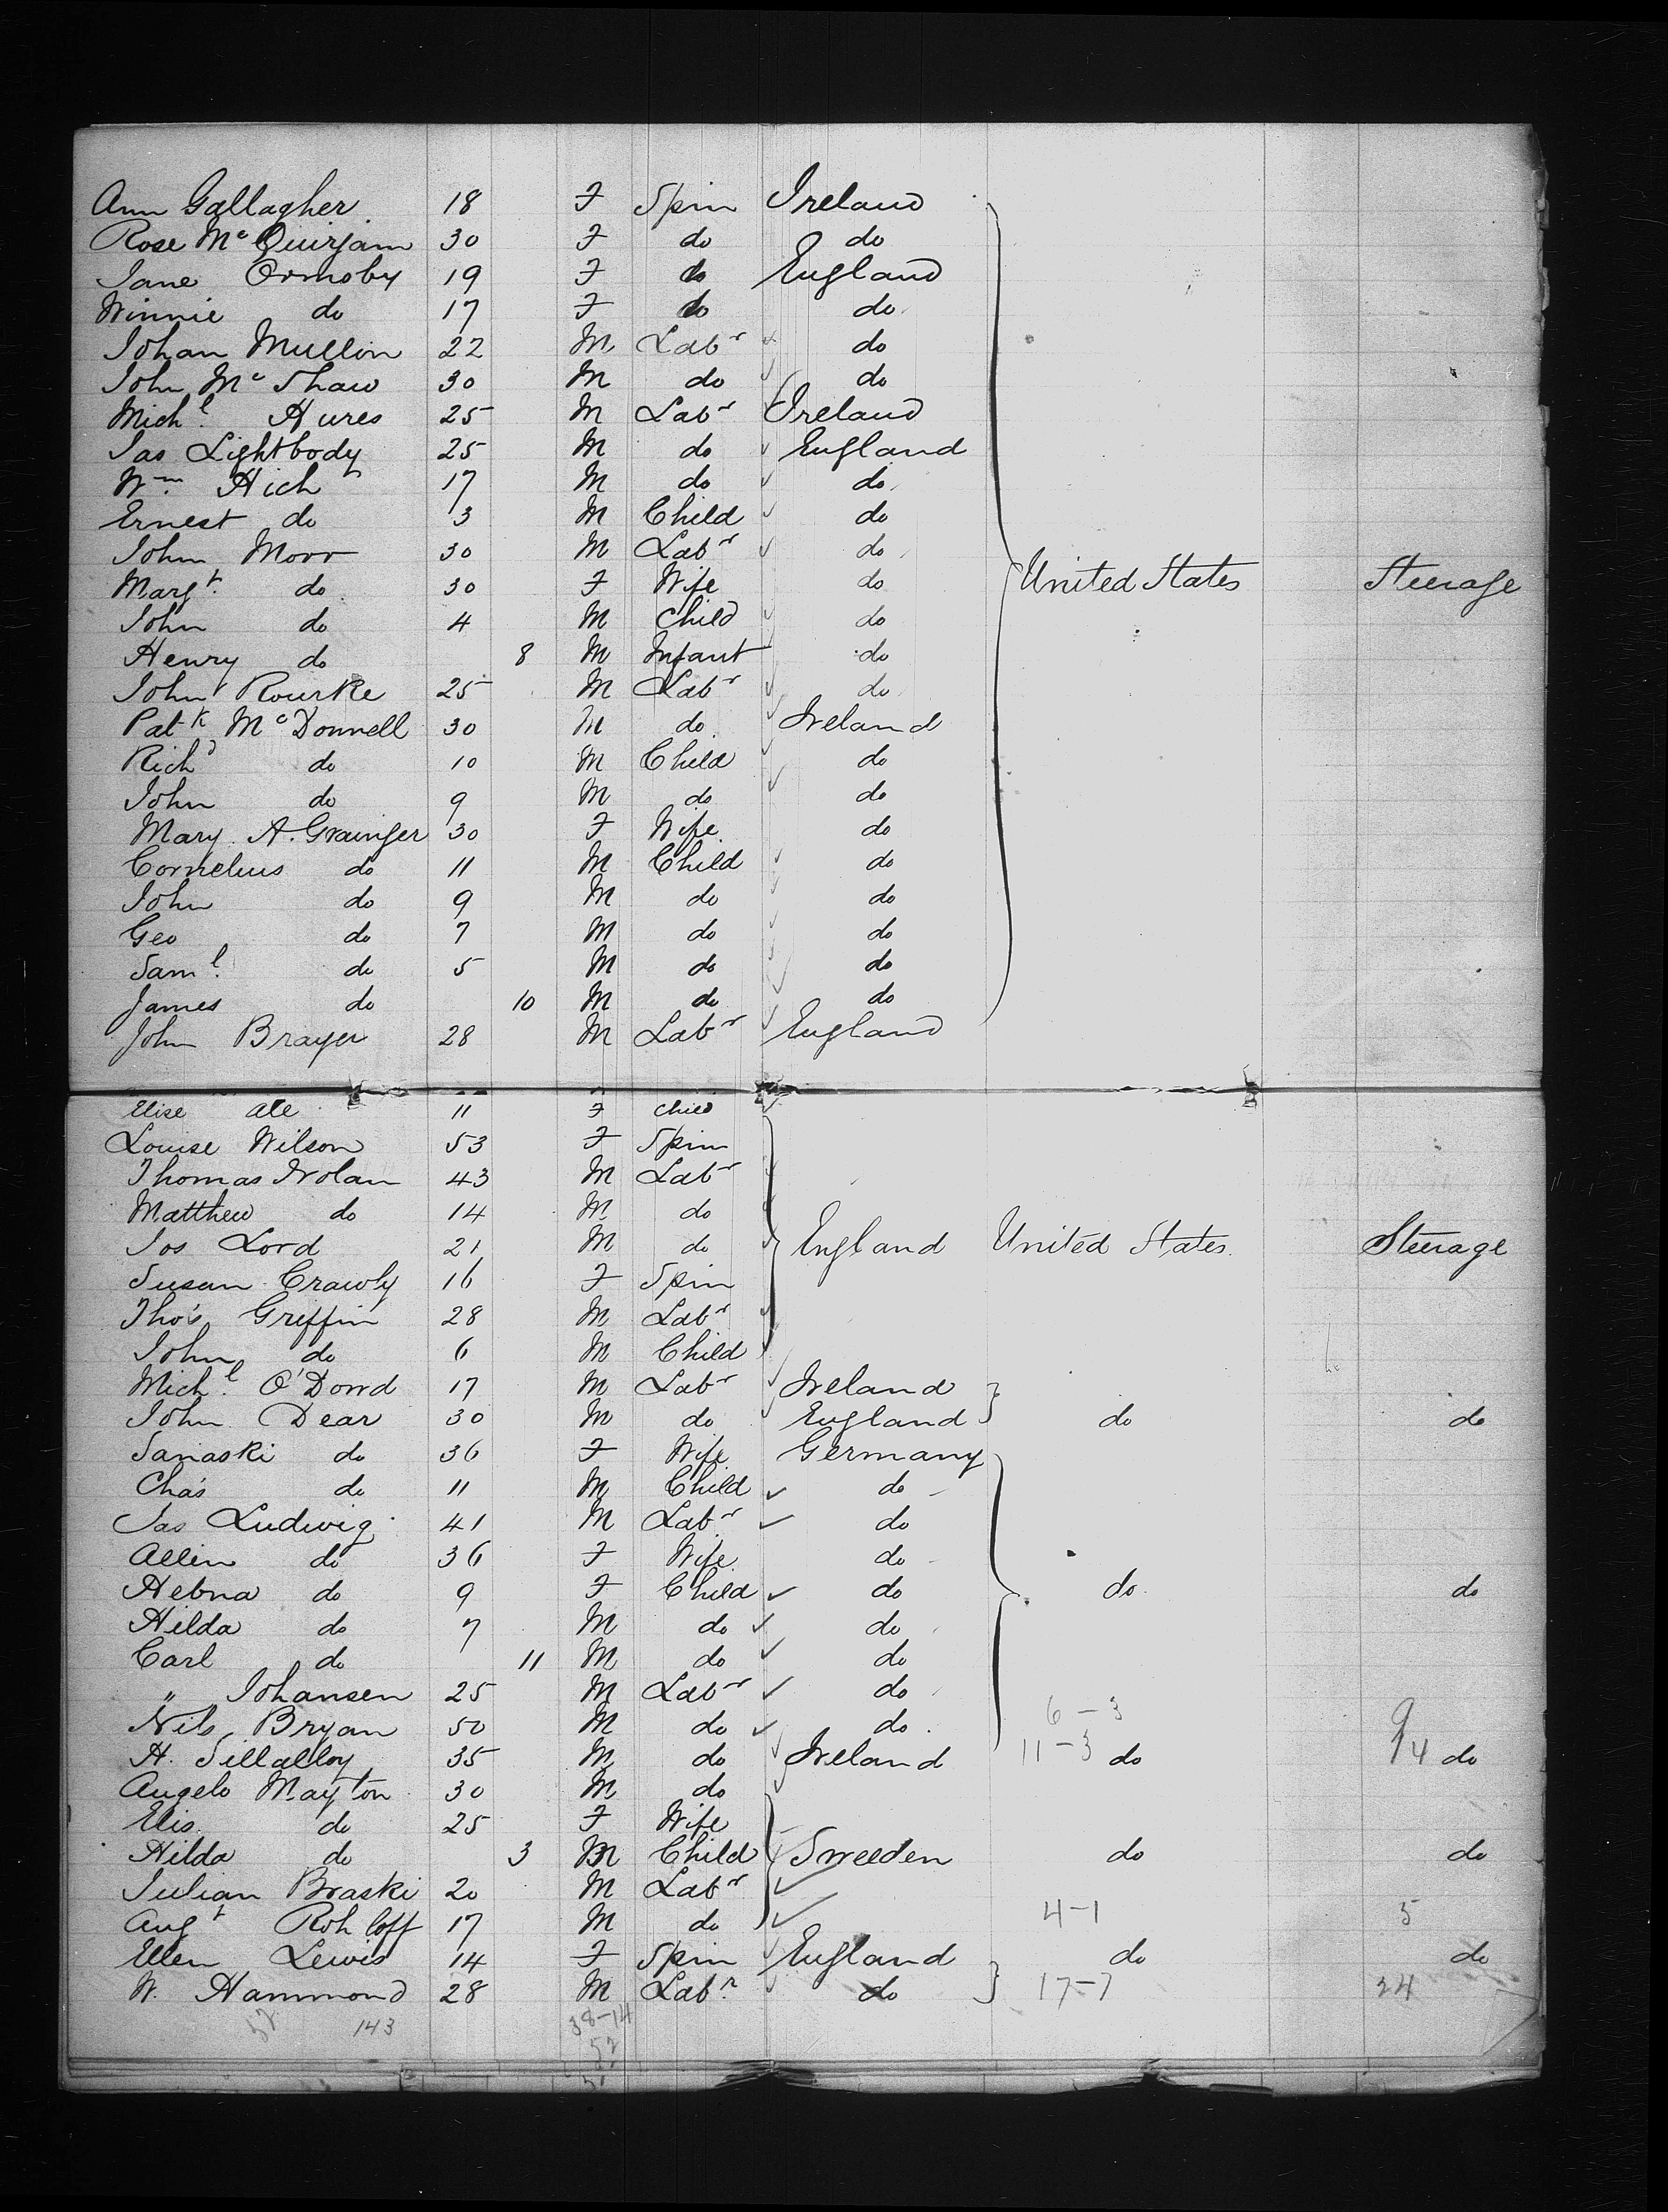 Ann Gallagher 18 F Spin Ireland
Rose Mc Quirjam 30 F do do
Jane Ormsby 19 F do England
Winnie do 17 F do do
Johan Mullin 22 M Labr do
John Mc Shaw 30 M do do
Michl. Hures 25 M Labr Ireland
Jas Lightbody 25 M do England
Wm. Hich 17 M do do
Ernest do 3 M Child do
John Morr 30 M Labr do
Margt. do 30 F Wife do United States Steerage
John do 4 M Child do
Henry do 8 M Infant do
John Rourke 25 M Labr do
Patk McDonnell 30 M do Ireland
Richd do 10 M Child do
John do 9 M do do
Mary A. Grainger 30 F Wife do
Cornelius do 11 M Child do
John do 9 M do do
Geo do 7 M do do
Saml. do 5 M do do
James do 10 M do do
John Brayer 28 M Labr England
Elise 11 F Child
Louise Wilson 53 F Spin
Thomas Nolan 43 M Labr
Matthew do 14 M do
Jos Lord 21 M do England United States Steerage
Susan Crawly 16 F Spin
Tho's Griffin 28 M Labr
John do 6 M Child
Michl. O'Dowd 17 M Labr Ireland
John Dear 30 M do England do do
Sanaski do 36 F Wife Germany
Cha's do 11 M Child do
Jas Ludwig 41 M Labr do
Allin do 36 F Wife do
Hebna do 9 F Child do do do
Hilda do 7 M do do
Carl do 11 M do do
" Johansen 25 M Labr do
Nils Bryan 50 M do do 6-3 9
H. Sillalloy 35 M do Ireland 11-3 do 14 do
Angelo Mayton 30 M do
Elis. do 25 F Wife
Hilda do 3 M Child Sweeden do do
Julian Braski 20 M Labr
Augt Rohloff 17 M do 4-1 5
Ellen Lewis 14 F Spin England do do
W. Hammond 28 M Labr. do 17-7 24
52 143 38-14
52